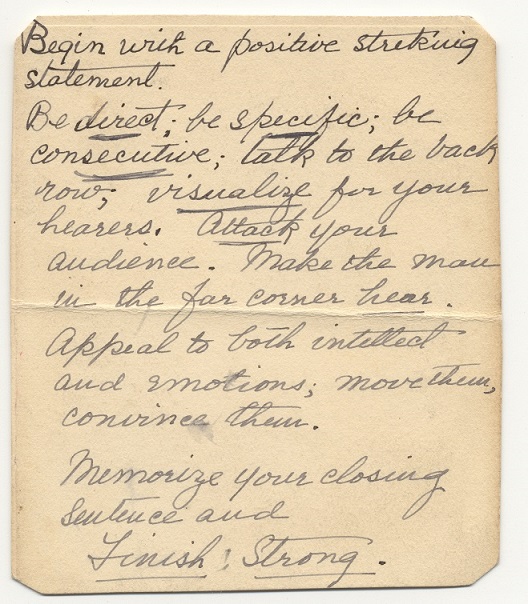 Begin with a positive streking
statement.
Be direct; be specific; be
consecutive; talk to the back
row; visualize for your
hearers. Attack your
audience. Make the man
in the far corner hear.
Appeal to both intellect
and emotions; move them,
convince them.
Memorize your closing
sentence and
Finish! Strong.